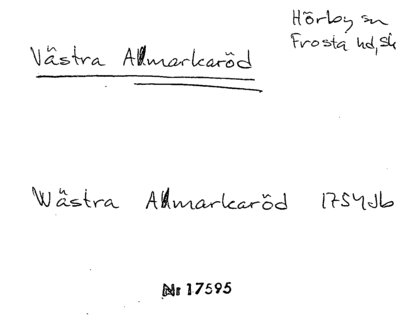 Hörby sn
Frosta hd, Sk
Västra Allmarkaröd
Wästra Allmarkaröd 1754 Jb
Nr 17595